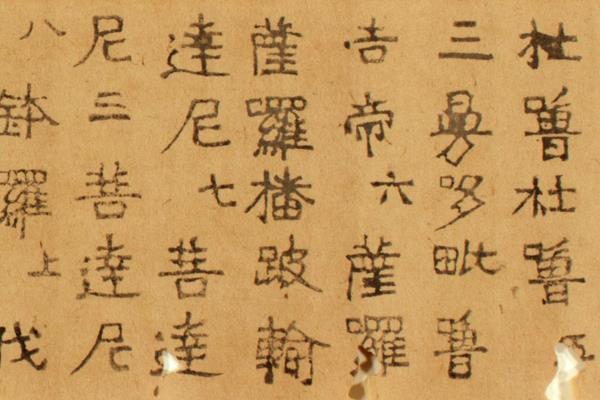 杜嚕杜嚕五
三曼哆毗魯
吉帝六薩囉
薩囉播跛輸
達尼七菩達
尼三菩達尼
八鉢囉上伐